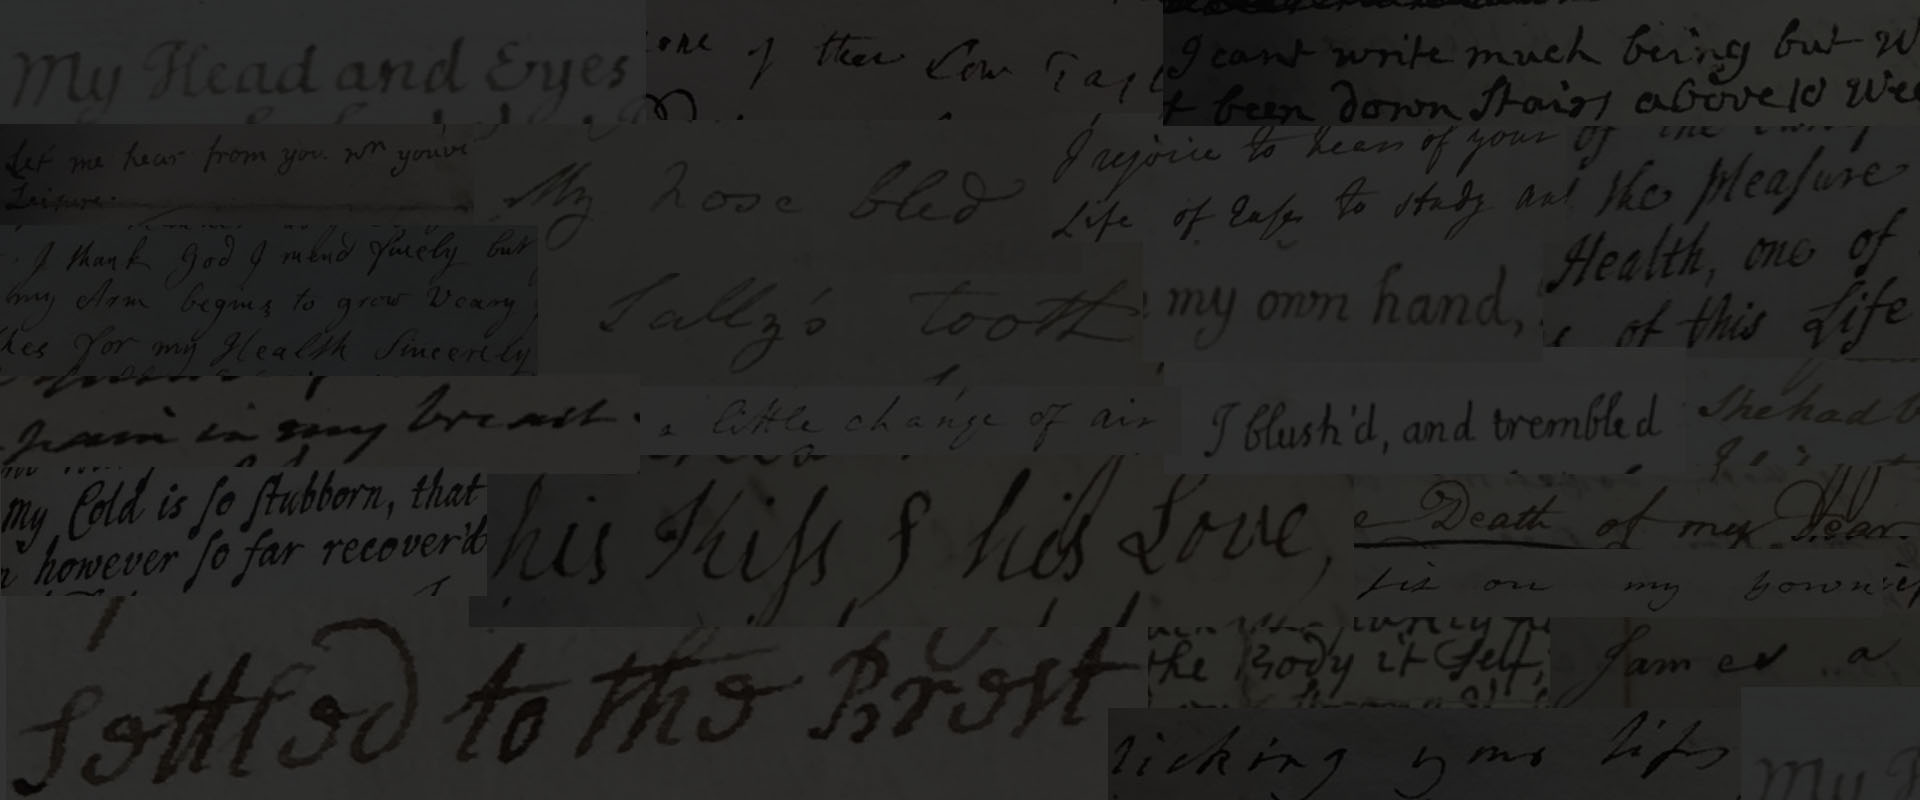 My Head and Eyes
one of their Low
I cant write much being but
been down Stairs above 10
Let me hear from you. wn
Leisure.
My nose bled
I rejoice to hear of your
Life of Ease to study and
the pleasure
Health, one of
of this Life
I thank God I mend finely but
my Arm begins to grow Weary
for my Health Sincerely
Sally's tooth
my own hand,
pain in my breast
a little change of air
I blush'd, and trembled
She had
my Cold is so stubborn, that
however so far recover'd
his Kiss & his Love,
Death of my Dear
on my
settled to the Brest
the Body it Self,
James a
licking lips
My